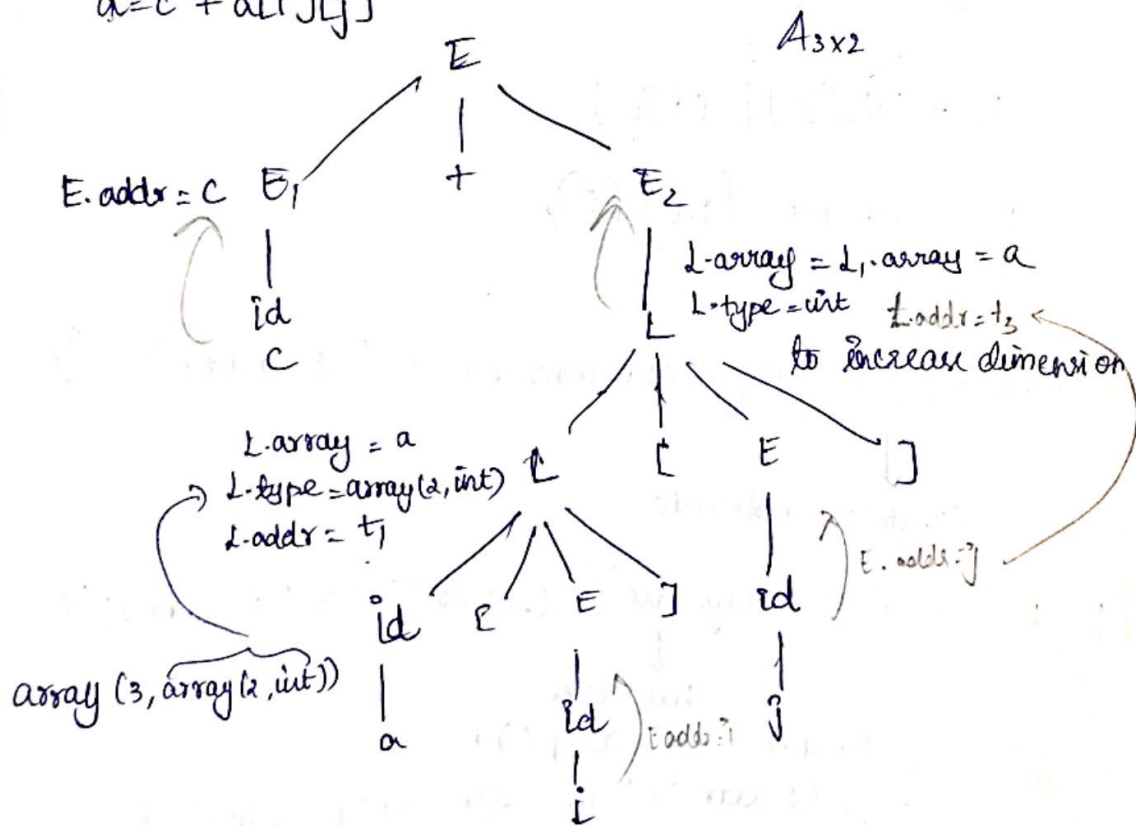 a=c + a[i][j]
A3x2
E
E.addr = C E1 + E2
L.array = L1.array = a
L.type = int L.addr = t3
id L
C to increase dimension
L.array = a
L [ E ]
L.type = array(2, int)
L.addr = t1
E.addr = j
id [ E ] id
array (3, array(2, int))
a id E.addr = i j
i